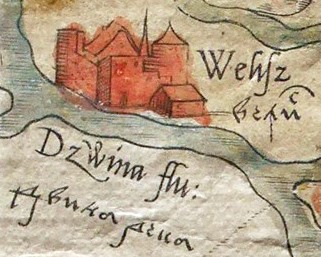 Wehsz
Dzwina flu:
двина река